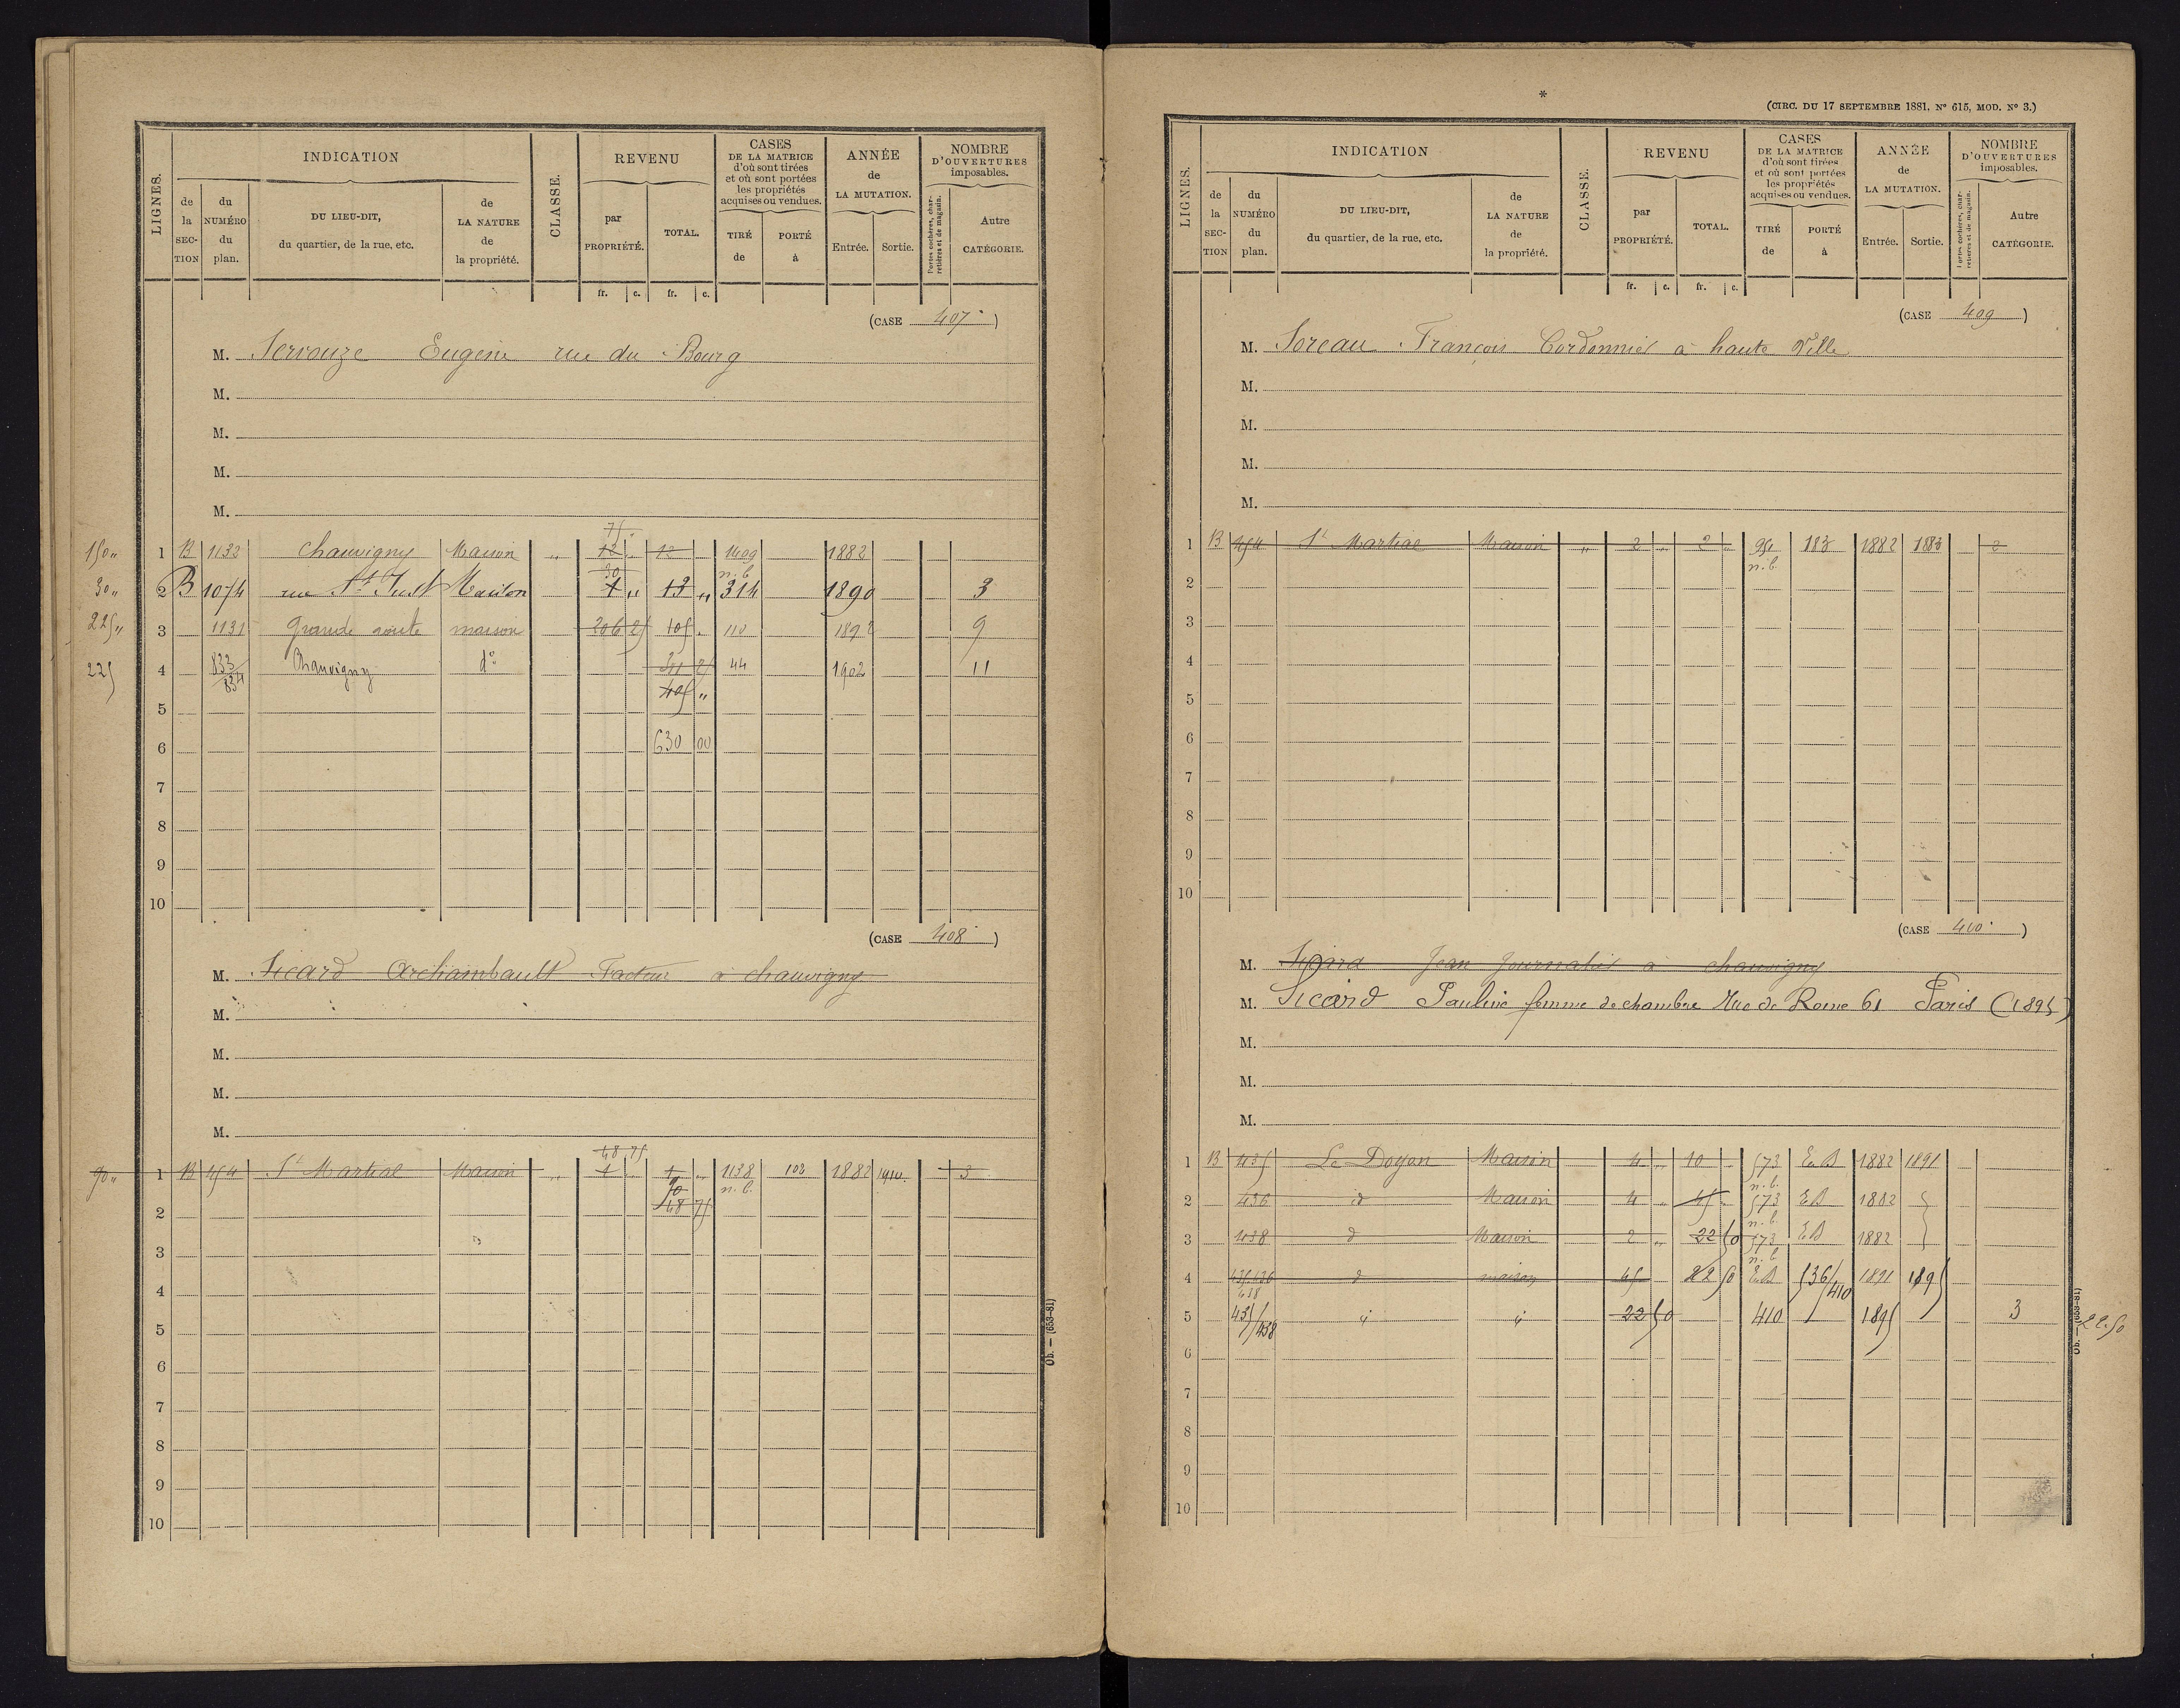 LIGNES.
INDICATION
de la SECTION
du NUMÉRO du plan.
DU LIEU-DIT, du quartier, de la rue, etc.
de LA NATURE de la propriété.
CLASSE.
REVENU
par PROPRIÉTÉ.
TOTAL.
CASES DE LA MATRICE d'où sont tirées et où sont portées les propriétés acquises ou vendues.
TIRÉ de
PORTÉ à
ANNÉE de LA MUTATION.
Entrée. Sortie.
NOMBRE D'OUVERTURES imposables.
Portes cochères, charretières et de magasin.
Autre CATÉGORIE.
fr. c. fr. c.
(CASE 407)
M. Serrouze Eugène rue du Bourg
M.
M.
M.
M.
75
150 " 1 B 1132 Chauvigny Maison " 12 " 12 1409 1882
30 n.b.
30 " 2 B 1074 rue St Just Maison 1 " 13 " 314 1890 3
225 " 3 1131 Grande route maison 206 25 105 . 110 1892 9
225 4 833/834 Chauvigny do 311 25 44 1902 11
405 "
5
6 630 00
7
8
9
10
(CASE 408)
M. Sicard Archambault Facteur à chauvigny
M.
M.
M.
M.
48 75
90 " 1 B 454 St Martial Maison " 1 " 1 " 1138 102 1882 1910 3
90 n.b.
2 48 75
3
4
5
6
7
8
9
10
Ob. — (653-81)
*
(CIRC. DU 17 SEPTEMBRE 1881, No 615, MOD. No 3.)
LIGNES.
INDICATION
de la SECTION
du NUMÉRO du plan.
DU LIEU-DIT, du quartier, de la rue, etc.
de LA NATURE de la propriété.
CLASSE.
REVENU
par PROPRIÉTÉ.
TOTAL.
CASES DE LA MATRICE d'où sont tirées et où sont portées les propriétés acquises ou vendues.
TIRÉ de
PORTÉ à
ANNÉE de LA MUTATION.
Entrée. Sortie.
NOMBRE D'OUVERTURES imposables.
Portes cochères, charretières et de magasin.
Autre CATÉGORIE.
fr. c. fr. c.
(CASE 409)
M. Soreau François Cordonnier à haute Ville
M.
M.
M.
M.
1 B 454 St Martial Maison " 2 " 2 " 951 183 1882 1883 2
n.b.
2
3
4
5
6
7
8
9
10
(CASE 400)
M. Sicard Jean Journalier à chauvigny
M. Sicard Pauline femme de chambre Rue de Rome 61 Paris (1895)
M.
M.
M.
1 B 435 Le Doyon Maison 4 " 10 573 En B 1882 1891
n.b.
2 436 d Maison 4 " 45 573 EB 1882
n.b.
3 438 d Maison 2 " 22 50 573 EB 1882
n.b.
4 435.436 438 d maison 45 22 50 En B 536/410 1891 1895
5 435/438 " " 22 50 410 1895 3 22.50
6
7
8
9
10
Ob. — (653-81)